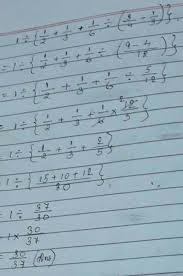 1 ÷ {1/2 + 1/3 + 1/6 ÷ (3/4 - 1/3)}
= 1 ÷ {1/2 + 1/3 + 1/6 ÷ (9-4/12)}
= 1 ÷ {1/2 + 1/3 + 1/6 ÷ 5/12}
= 1 ÷ {1/2 + 1/3 + 1/6 × 12/5}
= 1 ÷ {1/2 + 1/3 + 2/5}
= 1 ÷ {15+10+12/30}
= 1 ÷ 37/30
= 1 × 30/37
= 30/37 (Ans)